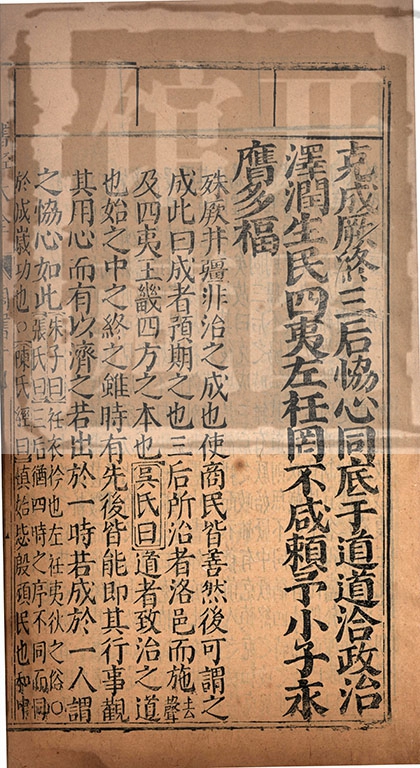 克成厥終三后恊心同底于道道洽政治
澤潤生民四夷左衽罔不咸賴予小子永
膺多福
殊厥井疆非治之成也使商民皆善然後可謂之
成此曰成者預期之也三后所治者洛邑而施去聲
及四夷王畿四方之本也吳氏曰道者致治之道
也始之中之終之雖時有先後皆能即其行事觀
其用心而有以濟之若出於一時若成於一人謂
之恊心如此朱子曰衽衣衿也左衽夷狄之俗○
張氏曰三后猶四時之序不同而同
於成歲功也○陳氏經曰慎始毖殷頑民也和中